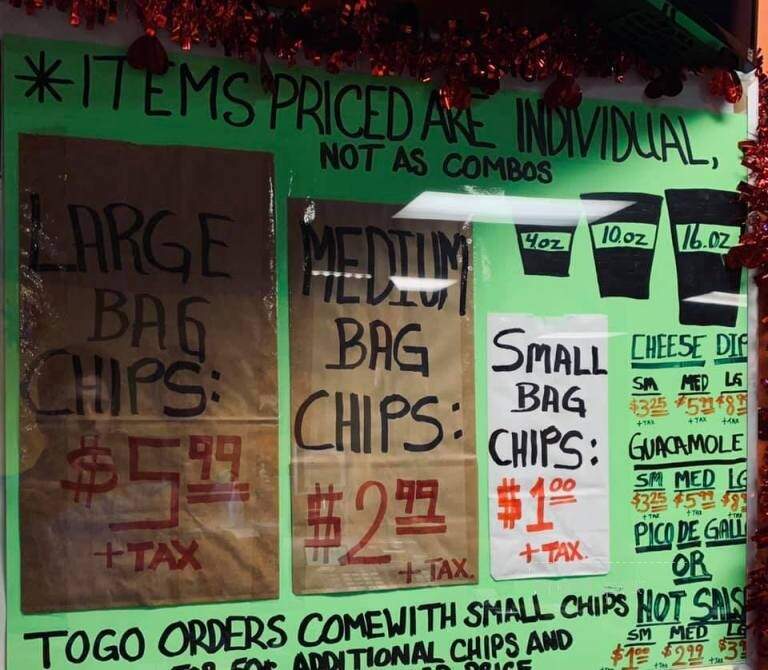 *ITEMS PRICED ARE INDIVIDUAL,
NOT AS COMBOS
LARGE
BAG
CHIPS:
$5.99
+ TAX
MEDIUM
BAG
CHIPS:
$2.99
+ TAX.
SMALL
BAG
CHIPS:
$1.00
+ TAX.
4oz 10.oz 16.oz
CHEESE DIP
SM MED LG
$3.25 $5.99
+TAX +TAX +TAX
GUACAMOLE
SM MED LG
$3.25 $5.99
+TAX +TAX +TAX
PICO DE GALL
OR
HOT SALS
SM MED LG
$1.00 $2.99
TOGO ORDERS COME WITH SMALL CHIPS
ADDITIONAL CHIPS AND
PRICE